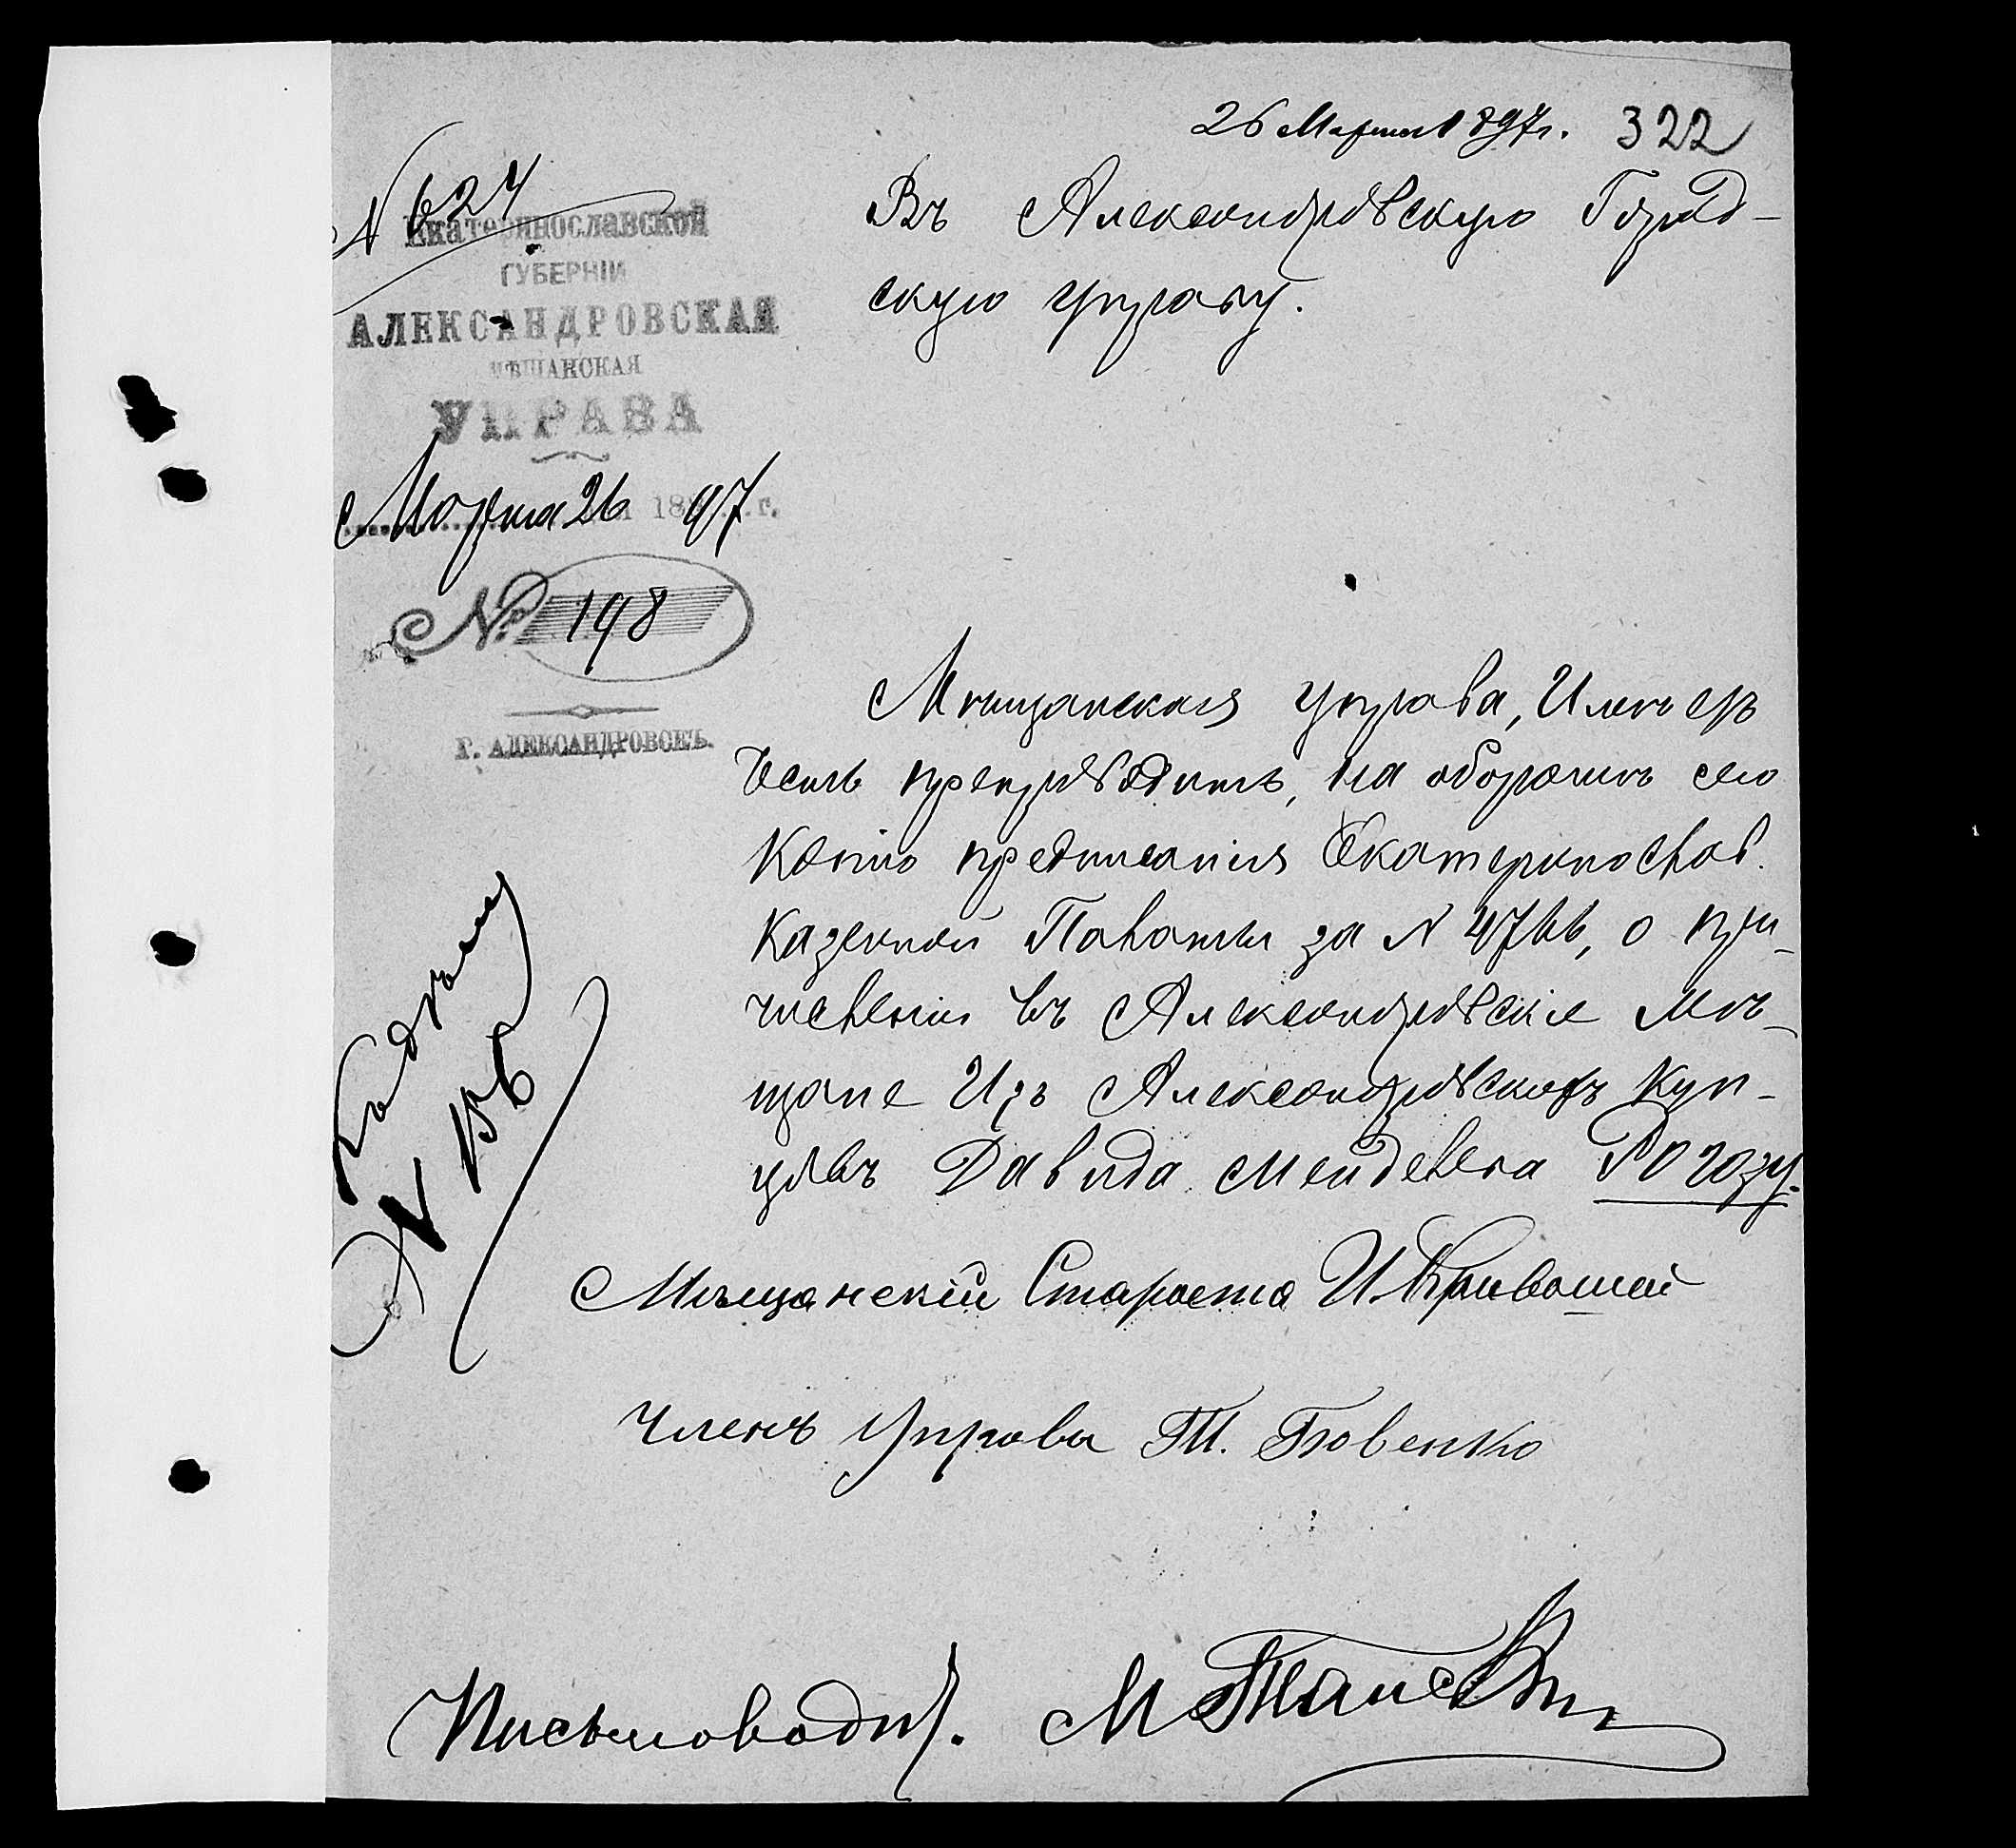 26 Марта 1897г. 322
N 624
Екатеринославской
ГУБЕРНІИ
АЛЕКСАНДРОВСКАЯ
МѢЩАНСКАЯ
УПРАВА
Марта 26 1897 г.
№ 198
Г. АЛЕКСАНДРОВСКЪ.
Въ Александровскую Город-
скую управу.
Мѣщанская управа, Имѣетъ
Честь препроводить, на оборотѣ сего
Копію предписанія Екатеринослав.
Казенной Палаты за N 4766, о при-
численіи въ Александровскіе Мѣ-
щане Изъ Александровскихъ Куп-
цовъ Давида Менделева Рогозу.
N 156
Мѣщанскій Староста И. Кривошей
Членъ Управы Т. Бовенко
Письмовод. М